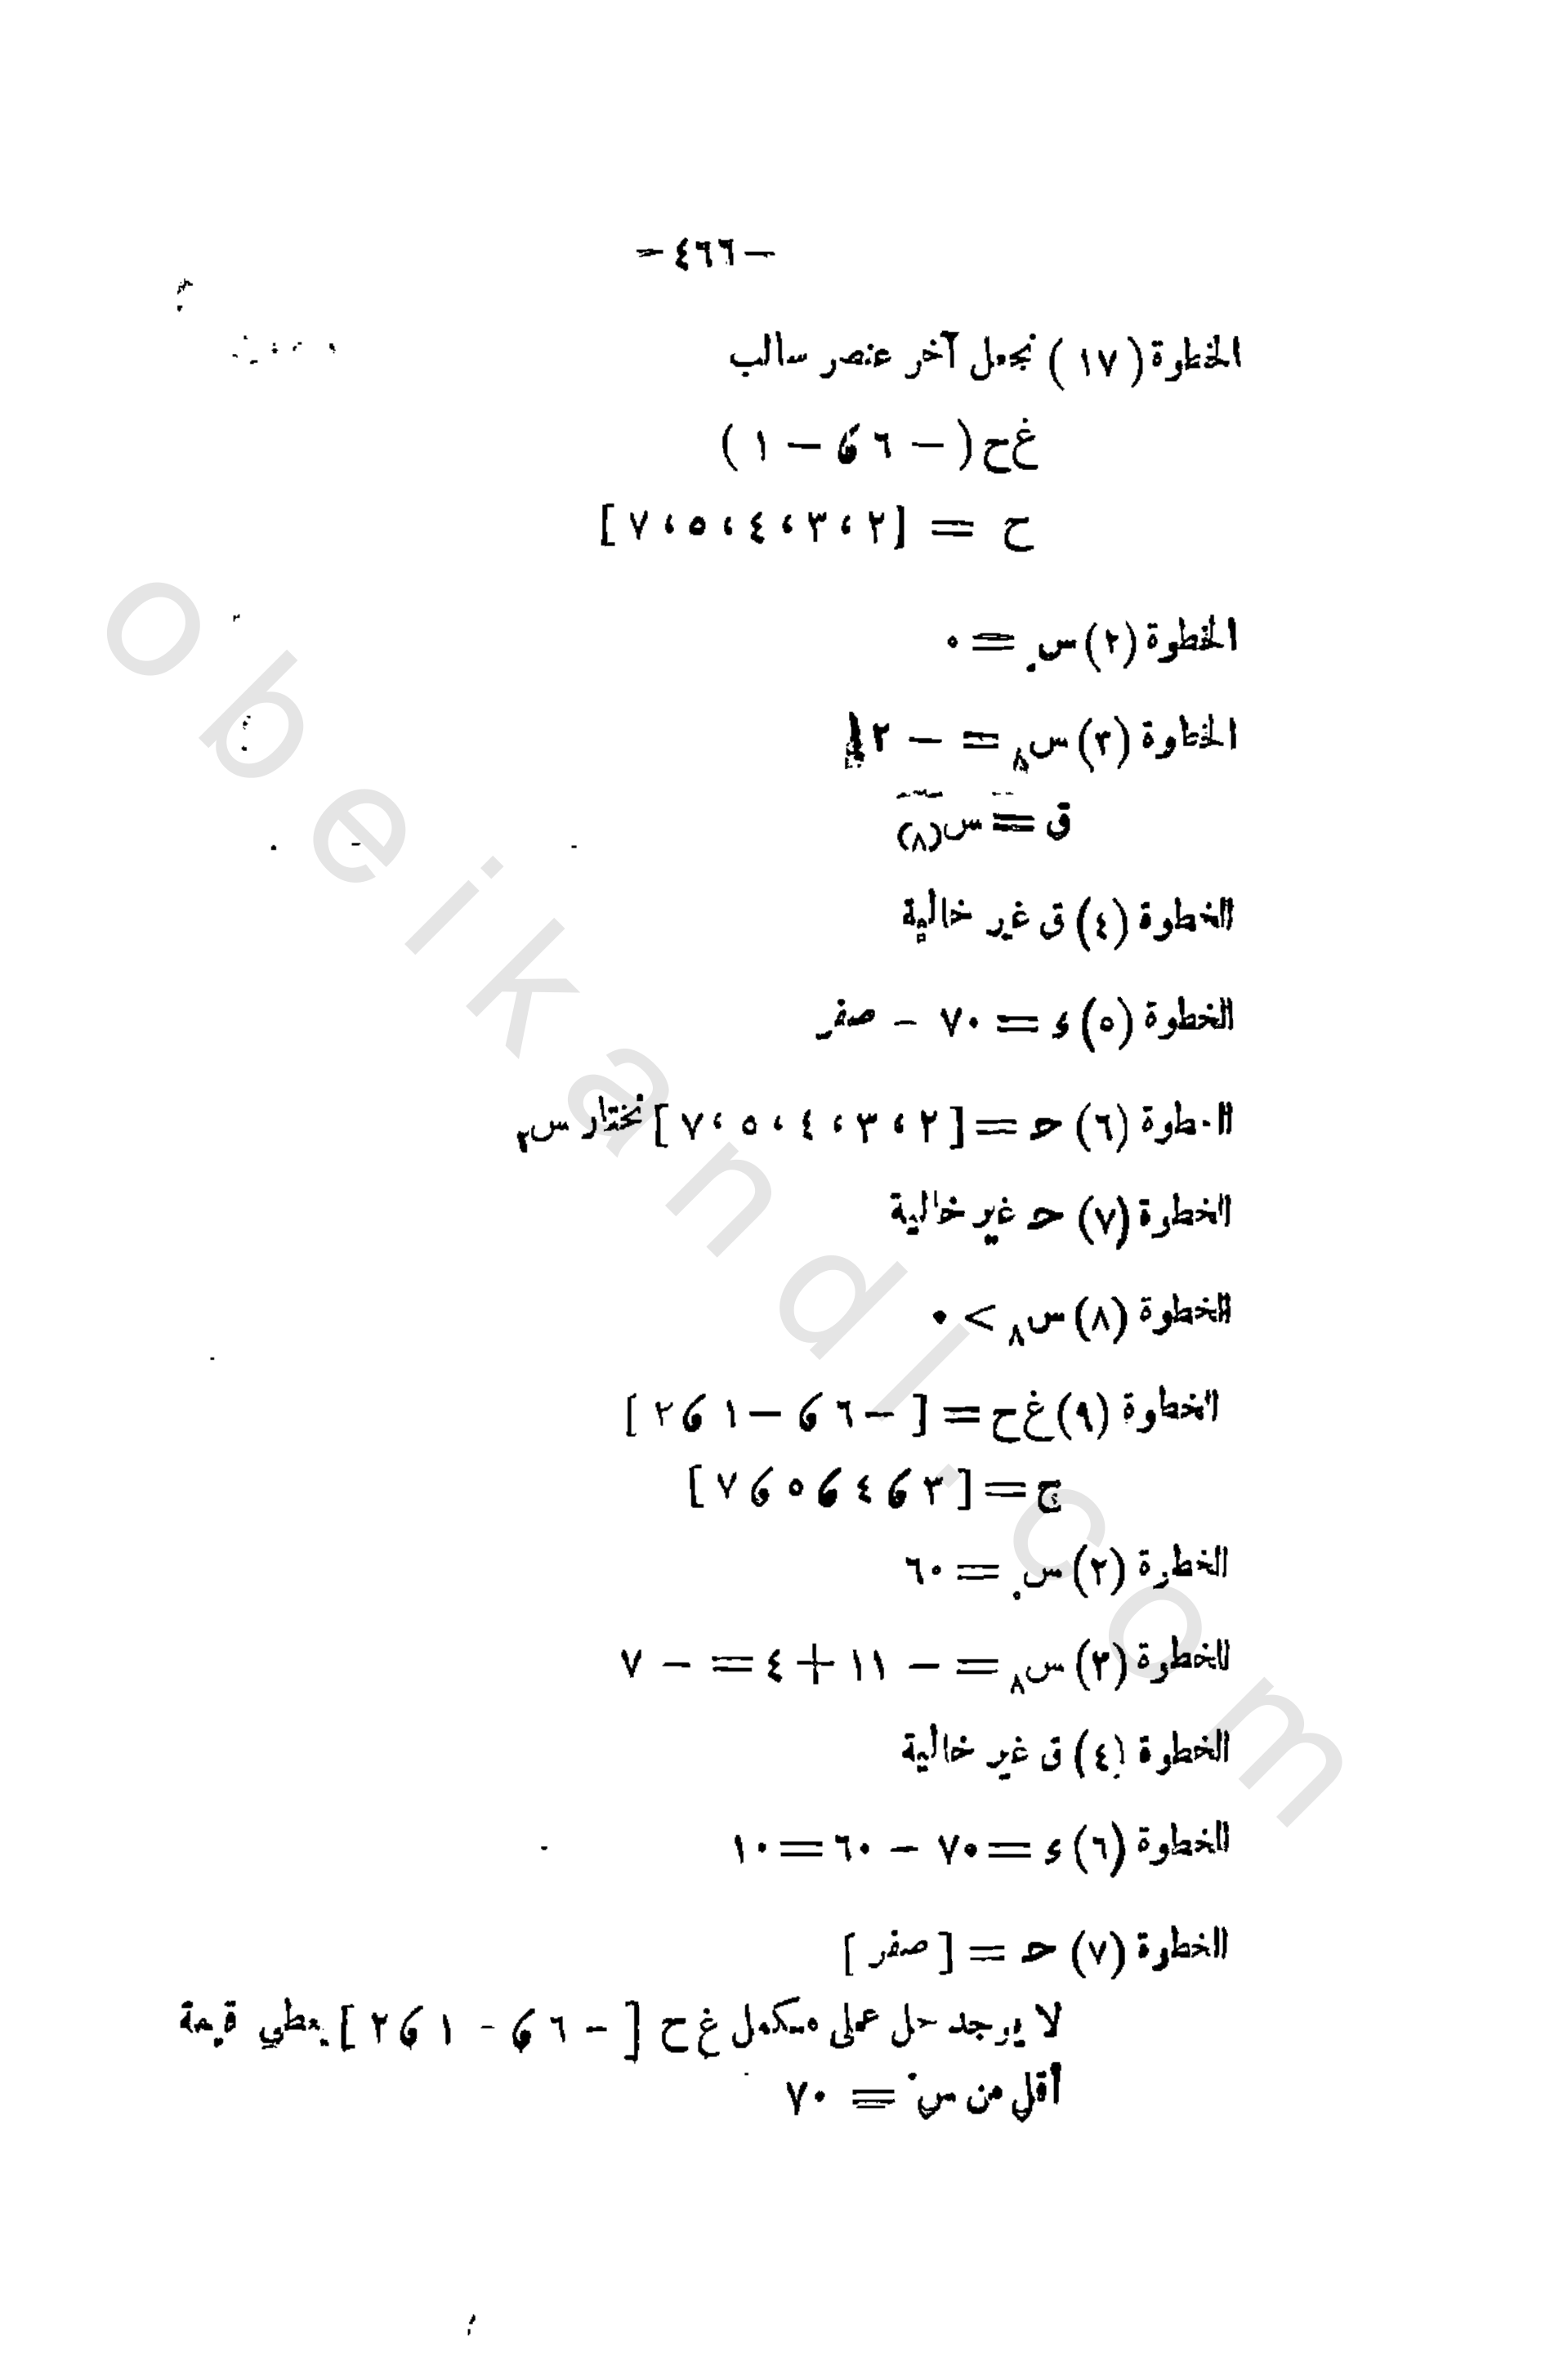 — ٤٦٦ —
الخطوة (١٧) نجعل آخر عنصر سالب
غ ح (— ٦ و — ١)
ح = [٢ ، ٣ ، ٤ ، ٥ ، ٧]
الخطوة (٢) س٠ = ٠
الخطوة (٣) س٨ = — ٢
ق = س(٨)
الخطوة (٤) ق غير خالية
الخطوة (٥) ء = ٧٠ — صفر
الخطوة (٦) حـ = [٢ ، ٣ ، ٤ ، ٥ ، ٧] نختار س٢
الخطوة (٧) حـ غير خالية
الخطوة (٨) س٨ > ٠
الخطوة (٩) غ ح = [— ٦ و — ١ و ٢]
ح = [٣ و ٤ و ٥ و ٧]
الخطوة (٢) س٠ = ٦٠
الخطوة (٣) س٨ = — ١١ + ٤ = — ٧
الخطوة (٤) ق غير خالية
الخطوة (٦) ء = ٧٠ — ٦٠ = ١٠
الخطوة (٧) حـ = [صفر]
لا يوجد حل على مكمل غ ح [— ٦ و — ١ و ٢] يعطي قيمة
أقل من س٠ = ٧٠
obeikandl.com